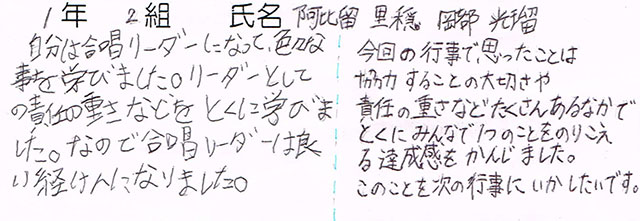 1年 2組 氏名 阿比留 里穏 岡部 光瑠
自分は合唱リーダーになって、色々な
事を学びました。リーダーとして
の責任の重さなどをとくに学びま
した。なので合唱リーダーは良
い経けんになりました。
今回の行事で、思ったことは
協力することの大切さや
責任の重さなどたくさんあるなかで
とくにみんなで1つのことをのりこえ
る達成感をかんじました。
このことを次の行事にいかしたいです。